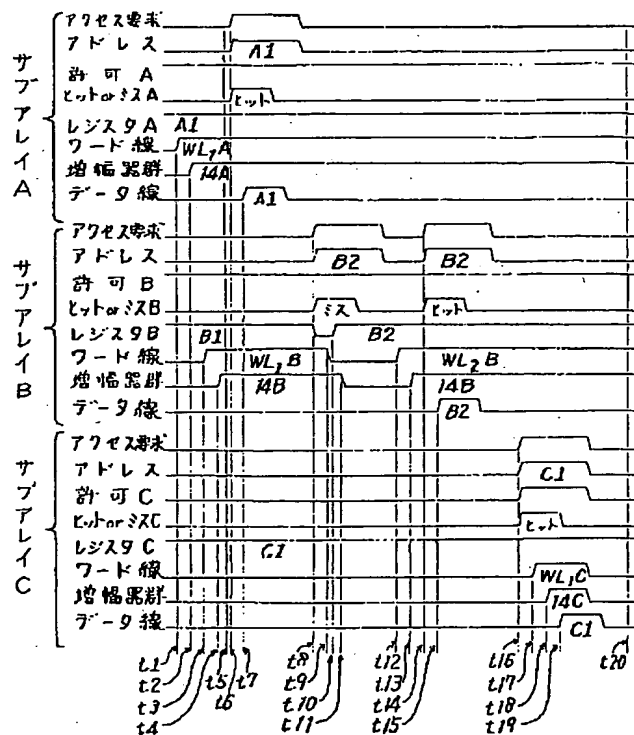 サブアレイA
アクセス要求
アドレス A1
許可A
ヒットorミスA ヒット
レジスタA A1
ワード線 WL1A
増幅器群 14A
データ線 A1
サブアレイB
アクセス要求
アドレス B2 B2
許可B
ヒットorミスB ミス ヒット
レジスタB B1 B2
ワード線 WL1B WL2B
増幅器群 14B 14B
データ線 B2
サブアレイC
アクセス要求
アドレス C1
許可C
ヒットorミスC ヒット
レジスタC C1
ワード線 WL1C
増幅器群 14C
データ線 C1
t1 t2 t3 t4 t5 t6 t7 t8 t9 t10 t11 t12 t13 t14 t15 t16 t17 t18 t19 t20